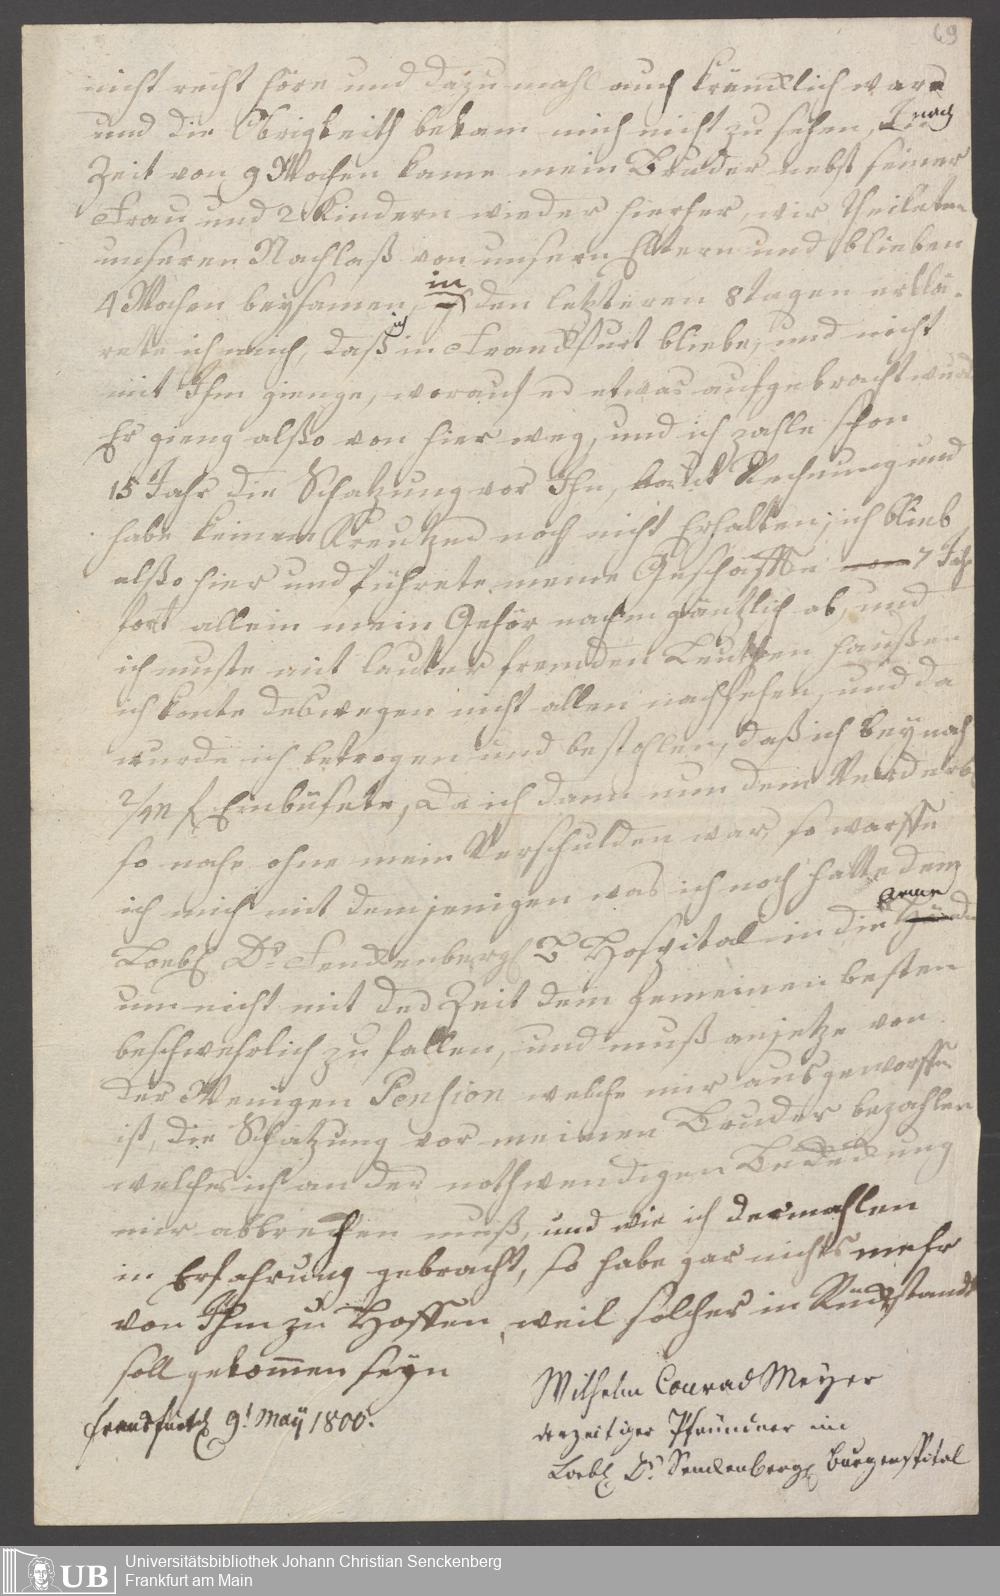 69
nicht recht höre und dazumahl auch kräncklich ware
und die Obrigkeith bekam mich nicht zu sehen, nach
Zeit von 9 Wochen kame mein Bruder nebst seiner
Frau und 2 Kindern wieder hierher, wir theileten
unseren Nachlaß von unsern Eltern und blieben
4 Wochen beysamen, in den letzteren 8 tagen erklä-
rete ich mich, daß ich in Franckfurt bliebe, und nicht
mit Ihm gienge, worauf er etwas aufgebracht wurd
Er gieng alßo von hier weg, und ich zahle schon
15 Jahr die Schatzung vor Ihn, laut Rechnung und
habe keinen Kreutzer noch nicht Erhalten; ich blieb
alßo hier und führete meine Geschäffte 7 Jahr
fort allein mein Gehör nahm gäntzlich ab, und
ich muste mit lauter fremden Leutten haußen
ich konte deswegen nicht allen nachsehen, und da
wurde ich betrogen und bestohlen, daß ich beynah
2/m f Einbüsete, Da ich dann nun dem Verderb
so nahe ohne mein Verschulden war, so warffe
ich mich mit demjenigen was ich noch hatte dem
Loebl Dr Senckenbergl B Hospital in die Arme
um nicht mit der Zeit dem gemeinen besten
beschwehrlich zu fallen, und muß anjetze von
der Wenigen Pension welche mir ausgeworffen
ist, die Schatzung vor meinen Bruder bezahlen
welches ich an der nothwendigen Bedeckung
mir abbrechen muß, und wie ich dermahlen
in Erfahrung gebracht, so habe gar nichts mehr
von Ihm zu Hoffen, weil solcher in Rückstandt
soll gekommen seyn
Wilhelm Conrad Meyer
Franckfurth 9t May 1800.
derzeitiger Pfründner im
Loebl Dr Senckenbergl Burgerspital
UB Universitätsbibliothek Johann Christian Senckenberg
Frankfurt am Main